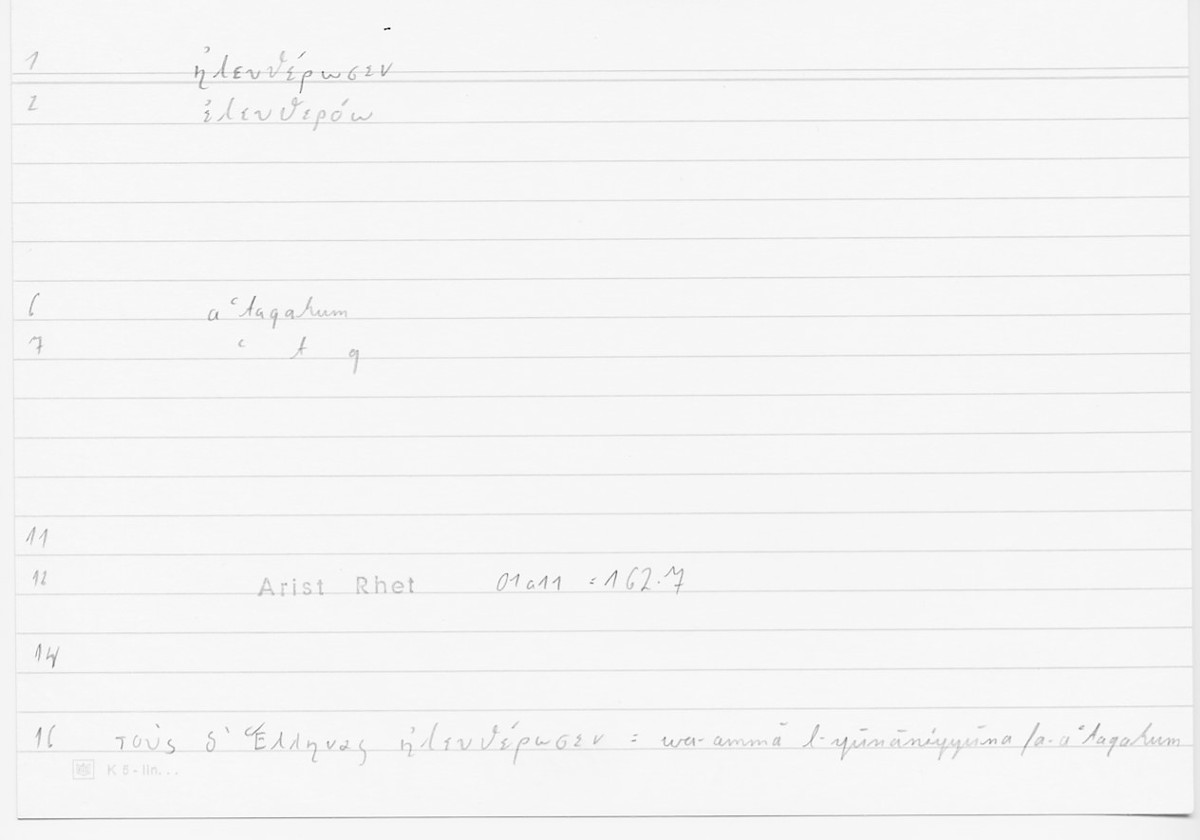 1 ἠλευθέρωσεν
2 ἐλευθερόω
6 aʿtaqahum
7 ʿ t q
11
12 Arist Rhet 01a11 = 162.7
14
16 τοὺς δ' Ἕλληνας ἠλευθέρωσεν = wa-ammā l-yūnānīyyūna fa-aʿtaqahum